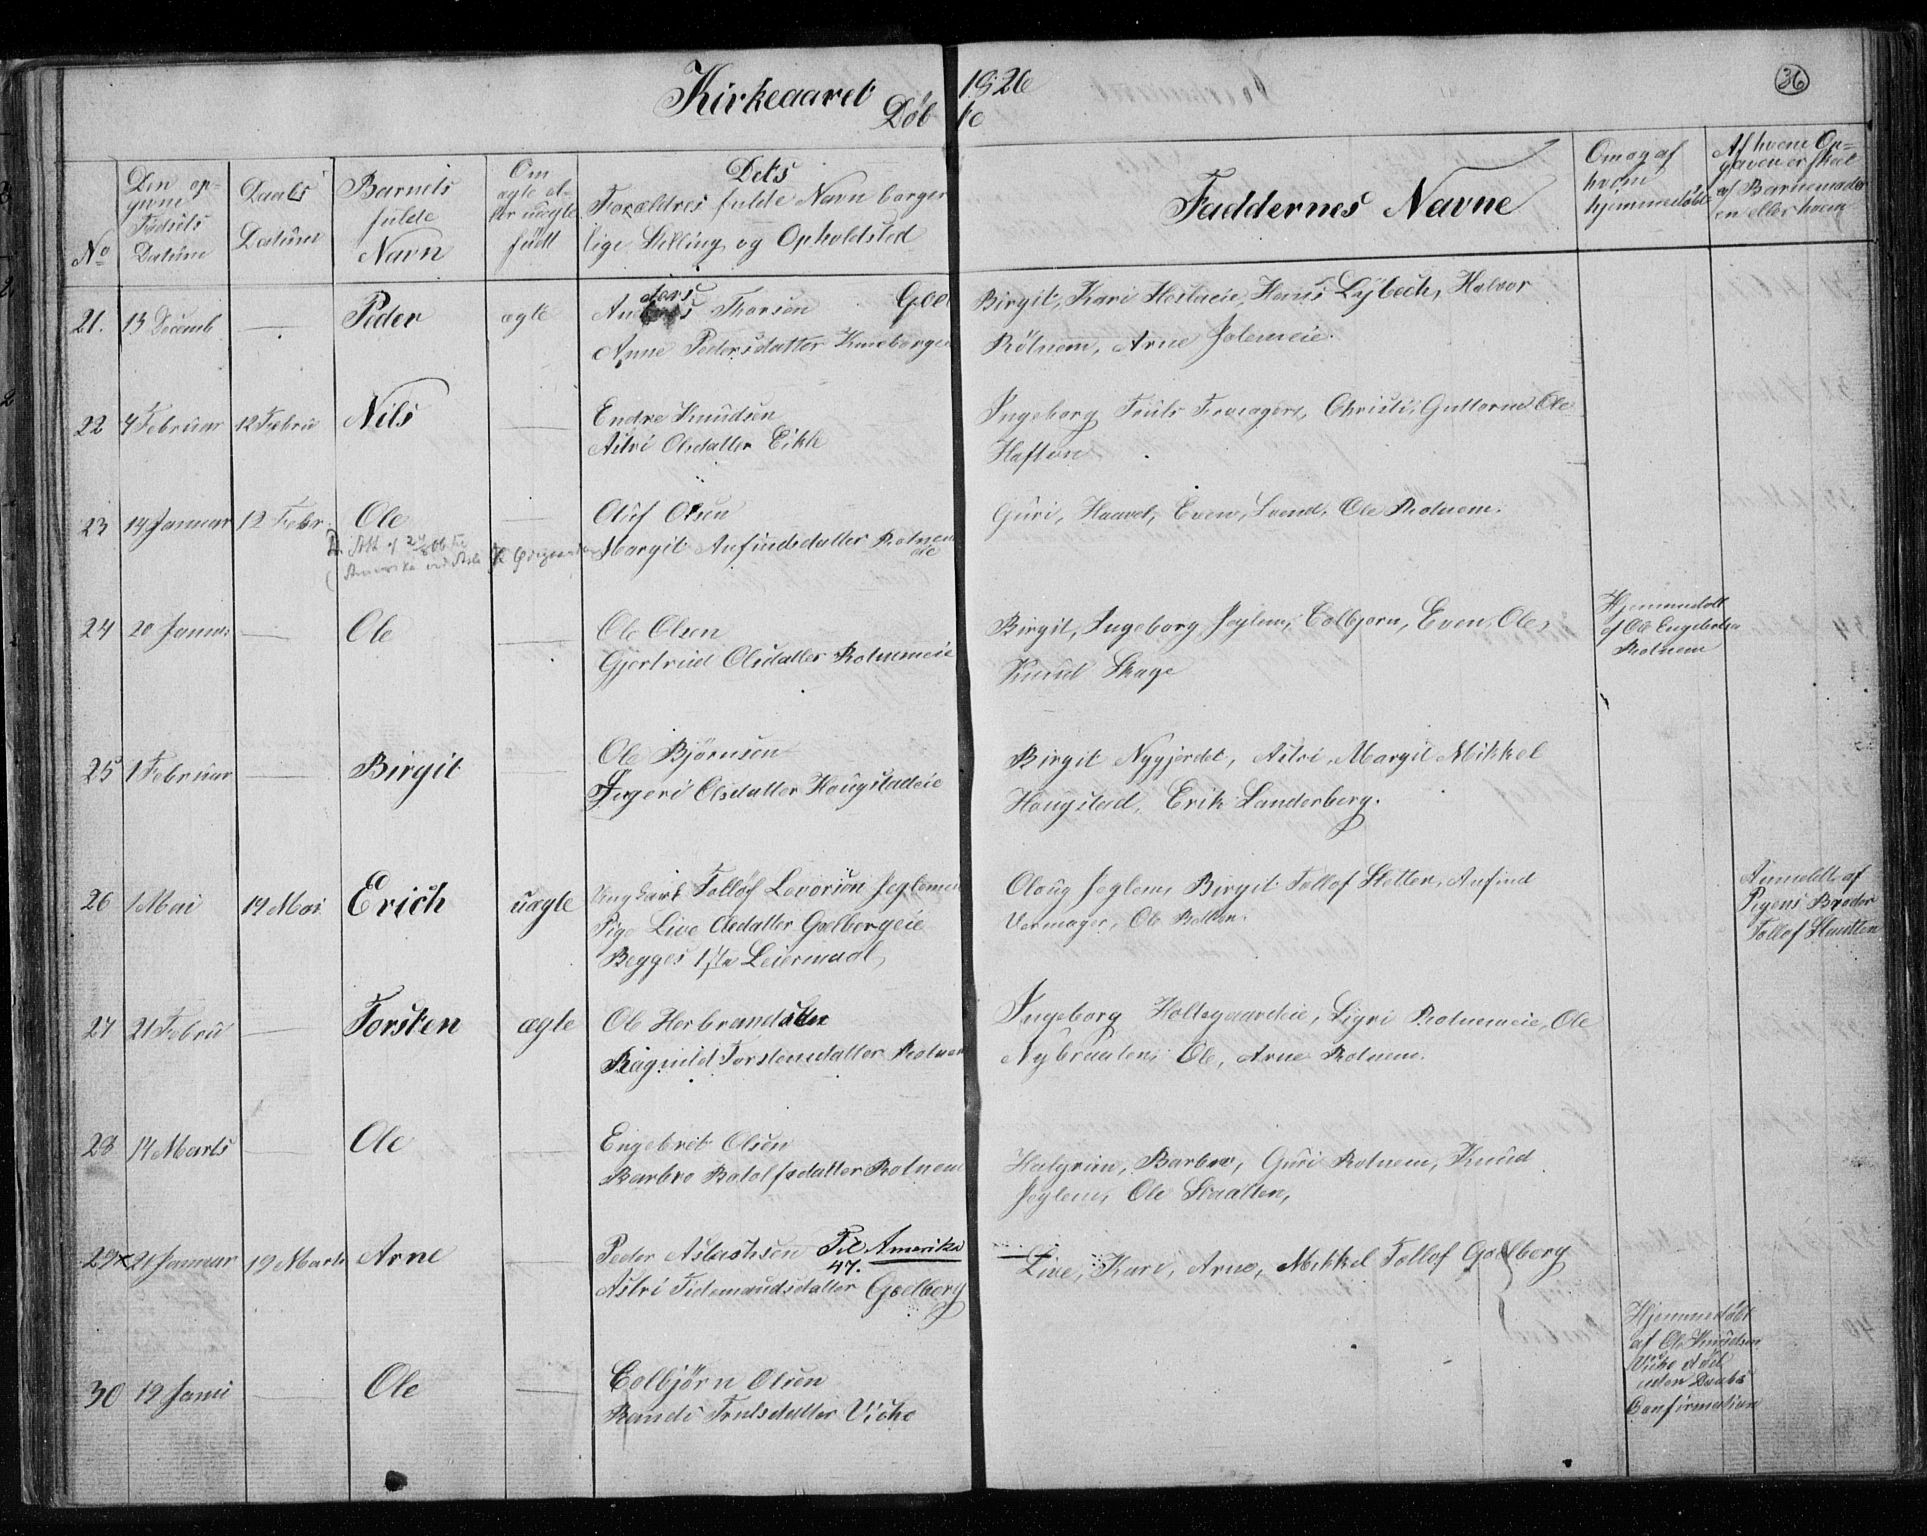 36
Kirkeaaret 1826
Døbte
No
Den op-
givne
Fødsels
Datum
Daabs
Datum
Barnets
fulde
Navn
Om
ægte el-
ler uægte
født
Dets
Forældres fulde Navn borger
lige Stilling og Opholdsted
Faddernes Navne
Om og af
hvem
hjemmedøbt
Af hvem Op-
gaven er skeet
af Barnemoder
en eller hvem
21. 13 Decemb — Peder ægte Anders Thorsen
Anne Pedersdatter
Birgit, Kari Hostaeie, Hans Lybech, Halvor
Rotnem, Arne
22 4 Februar 12 Febru Nils — Endre Knudsen
Astri Olsdatter Eikle
Ingeborg, Truls, Christi, Guttorm, Ole
Haftun
23 14 Januar 12 Febr. Ole — Oluf Olsen
Margit Anfindsdatter Rotnem
eie
Guri, Haavel, Even, Svend, Ole Rotnem.
24 20 Janu — Ole — Ole Olsen
Gjertrud Olsdatter Rotnemeie
Birgit, Ingeborg Jeglem, Colbjorn, Even, Ole,
Knud Skage
Hjemmedøbt
af Ole Engebretsen
Rotnem
25 1 Februar — Birgit — Ole Bjørnsen
Ingeri Olsdatter Haugstadeie
Birgit Nygjerdet, Astri, Margit Mikkel
Haugstad, Erik Sanderberg.
26 1 Mai 19 Mai Erich uægte Ungkarl Tollof Levorsen Jeglem
Pige Live Olsdatter Gælbergeie
Begges 1ste Leiermaal
Olaug Jeglem, Birgit Tollof Sletten, Anfind
Vermager, Ole
Anmeldt af
Pigens Broder
Tollof Slaatten
27 21 Febru — Torsten ægte Ole Herbrandsen
Ragnild Torstensdatter Rotnem
Ingeborg Holtegaardeie, Sigri Rotnemeie, Ole
Nybraaten, Ole, Arne Rotnem.
28 14 Marts — Ole — Engebret Olsen
Barbro Botolfsdatter Rotnem
Halgrim, Barbro, Guri Rotnem, Knud
Jeglem, Ole Slaatten,
29 x 21 Januar 19 Marts Arne — Peder Aslachsen Til Amerika
47.
Astri Tidemandsdatter Gælberg
Live, Kari, Arne, Mikkel Tollof Gælberg
30 19 Janu — Ole — Colbjørn Olsen
Randi Trulsdatter Viko
Hjemmedøbt
af Ole Knudsen
Viko død
uden Daabs
Confirmation